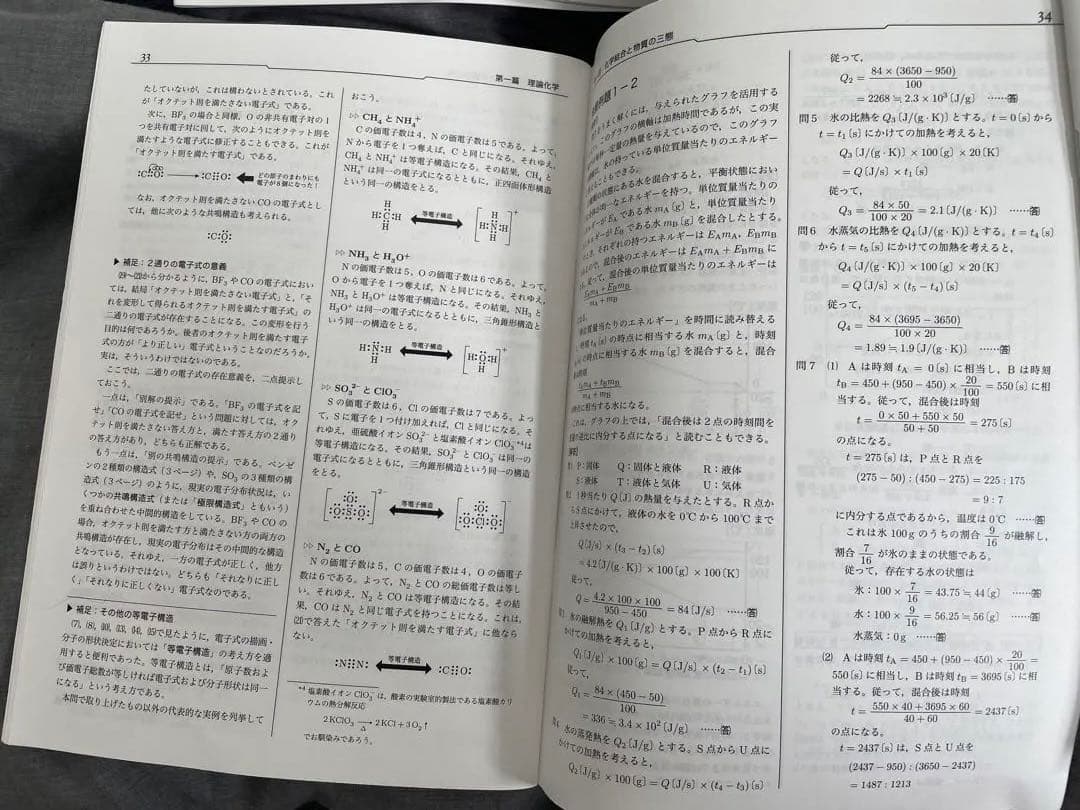 33
第一篇 理論化学
たしていないが,これは構わないとされている。これ
が「オクテット則を満たさない電子式」である。
次に,BF₃の場合と同様,Oの非共有電子対の1
つを共有電子対に回して,次のようにオクテット則を
満たすような電子式に修正することもできる。これが
「オクテット則を満たす電子式」である。
どの原子のまわりにも
電子が8個になった!
なお,オクテット則を満たさないCOの電子式とし
ては,他に次のような共鳴構造も考えられる。
:C:Ö:
▶補足:2通りの電子式の意義
から分かるように,BF₃やCOの電子式におい
ては,結局「オクテット則を満たさない電子式」と,「そ
れを変形して得られるオクテット則を満たす電子式」の
二通りの電子式が存在することになる。この変形を行う
目的は何であろうか。後者のオクテット則を満たす電子
式の方が「より正しい」電子式ということなのだろうか。
実は,そういうわけではないのである。
ここでは,二通りの電子式の存在意義を,二点提示し
ておこう。
一点は,「別解の提示」である。「BF₃の電子式を記
せ」「COの電子式を記せ」という問題に対しては,オク
テット則を満たさない答え方と,満たす答え方の2通り
の答え方があり,どちらも正解である。
もう一点は,「別の共鳴構造の提示」である。ベンゼ
ンの2種類の構造式(3ページ)や,SO₃の3種類の構
造式(3ページ)のように,現実の電子分布状況は,い
くつかの共鳴構造式(または「極限構造式」ともいう)
を重ね合わせた中間的な構造をしている。BF₃やCOの
場合,オクテット則を満たす方と満たさない方の両方の
共鳴構造が存在し,現実の電子分布はその中間的な構造
となっている。それゆえ,一方の電子式が正しく,他方
は誤りというわけではない。どちらも「それなりに正し
く」「それなりに正しくない」電子式なのである。
▶補足:その他の等電子構造
(7),(8),で見たように,電子式の描画・
分子の形状決定においては「等電子構造」の考え方を適
用すると便利であった。等電子構造とは,「原子数およ
び価電子総数が等しければ電子式および分子形状は同一
になる」という考え方である。
本問で取り上げたもの以外の代表的な実例を列挙して
おこう。
▷▷ CH₄とNH₄⁺
Cの価電子数は4,Nの価電子数は5である。よって,
Nから電子を1つ奪えば,Cと同じになる。それゆえ,
CH₄とNH₄⁺は等電子構造になる。その結果,CH₄と
NH₄⁺は同一の電子式になるとともに,正四面体形構造
という同一の構造をとる。
等電子構造
▷▷ NH₃とH₃O⁺
Nの価電子数は5,Oの価電子数は6である。よって,
Oから電子を1つ奪えば,Nと同じになる。それゆえ,
NH₃とH₃O⁺は等電子構造になる。その結果,NH₃と
H₃O⁺は同一の電子式になるとともに,三角錐形構造と
いう同一の構造をとる。
等電子構造
▷▷ SO₃²⁻とClO₃⁻
Sの価電子数は6,Clの価電子数は7である。よっ
て,Sに電子を1つ付け加えれば,Clと同じになる。そ
れゆえ,亜硫酸イオンSO₃²⁻と塩素酸イオンClO₃⁻*⁴は
等電子構造になる。その結果,SO₃²⁻とClO₃⁻は同一の
電子式になるとともに,三角錐形構造という同一の構造
をとる。
等電子構造
▷▷ N₂とCO
Nの価電子数は5,Cの価電子数は4,Oの価電子
数は6である。よって,N₂とCOの総価電子数は等し
い。それゆえ,N₂とCOは等電子構造になる。その結
果,COはN₂と同じ電子式を持つことになる。これは,
で答えた「オクテット則を満たす電子式」に他なら
ない。
:N⋮⋮N: 等電子構造 :C⋮⋮O:
*⁴ 塩素酸イオンClO₃⁻は,酸素の実験室的製法である塩素酸カリ
ウムの熱分解反応
2KClO₃ →Δ 2KCl+3O₂↑
でお馴染みであろう。
34
化学結合と物質の三態
題1-2
うまく解くには,与えられたグラフを活用する
このグラフの横軸は加熱時間であるが,この実
一定量の熱量を与えているので,このグラフ
の持っている単位質量当たりのエネルギー
ることもできる。
状態にある水を混合すると,平衡状態におい
均一なエネルギーを持つ。単位質量当たりの
ギーがE_Aである水m_A〔g〕と,単位質量当たり
ギーがE_Bである水m_B〔g〕を混合したとする。
それぞれの持つエネルギーはE_Am_A,E_Bm_B
ので,混合後のエネルギーはE_Am_A+E_Bm_Bに
従って,混合後の単位質量当たりのエネルギーは
m_A+m_B
なる。
単位質量当たりのエネルギー」を時間に読み替える
時刻t_A〔s〕の時点に相当する水m_A〔g〕と,時刻
の時点に相当する水m_B〔g〕を混合すると,混合
t_Am_A+t_Bm_B
m_A+m_B
に相当する水になる。
これは,グラフの上では,「混合後は2点の時刻間を
の逆比に内分する点になる」と読むこともできる。
P:固体 Q:固体と液体 R:液体
S:液体 T:液体と気体 U:気体
1秒当たりQ〔J〕の熱量を与えたとする。R点か
らS点にかけて,液体の水を0℃から100℃まで
上昇させたので,
Q〔J/s〕×(t₃-t₂)〔s〕
=4.2〔J/(g・K)〕×100〔g〕×100〔K〕
従って,
Q=4.2×100×100/(950-450)=84〔J/s〕 ……答
氷の融解熱をQ₁〔J/g〕とする。P点からR点に
かけての加熱を考えると,
Q₁〔J/g〕×100〔g〕=Q〔J/s〕×(t₂-t₁)〔s〕
従って,
Q₁=84×(450-50)/100
=336≒3.4×10²〔J/g〕 ……答
水の蒸発熱をQ₂〔J/g〕とする。S点からU点に
かけての加熱を考えると,
Q₂〔J/g〕×100〔g〕=Q〔J/s〕×(t₄-t₃)〔s〕
従って,
Q₂=84×(3650-950)/100
=2268≒2.3×10³〔J/g〕 ……答
問5 氷の比熱をQ₃〔J/(g・K)〕とする。t=0〔s〕から
t=t₁〔s〕にかけての加熱を考えると,
Q₃〔J/(g・K)〕×100〔g〕×20〔K〕
=Q〔J/s〕×t₁〔s〕
従って,
Q₃=84×50/(100×20)=2.1〔J/(g・K)〕 ……答
問6 水蒸気の比熱をQ₄〔J/(g・K)〕とする。t=t₄〔s〕
からt=t₅〔s〕にかけての加熱を考えると,
Q₄〔J/(g・K)〕×100〔g〕×20〔K〕
=Q〔J/s〕×(t₅-t₄)〔s〕
従って,
Q₄=84×(3695-3650)/(100×20)
=1.89≒1.9〔J/(g・K)〕 ……答
問7 (1) Aは時刻t_A=0〔s〕に相当し,Bは時刻
t_B=450+(950-450)×20/100=550〔s〕に相
当する。従って,混合後は時刻
t=(0×50+550×50)/(50+50)=275〔s〕
の点になる。
t=275〔s〕は,P点とR点を
(275-50):(450-275)=225:175
=9:7
に内分する点であるから,温度は0℃ ……答
これは氷100gのうちの割合9/16が融解し,
割合7/16が氷のままの状態である。
従って,存在する水の状態は
氷:100×7/16=43.75≒44〔g〕 ……答
水:100×9/16=56.25≒56〔g〕 ……答
水蒸気:0g ……答
(2) Aは時刻t_A=450+(950-450)×20/100=
550〔s〕に相当し,Bは時刻t_B=3695〔s〕に相
当する。従って,混合後は時刻
t=(550×40+3695×60)/(40+60)=2437〔s〕
の点になる。
t=2437〔s〕は,S点とU点を
(2437-950):(3650-2437)
=1487:1213